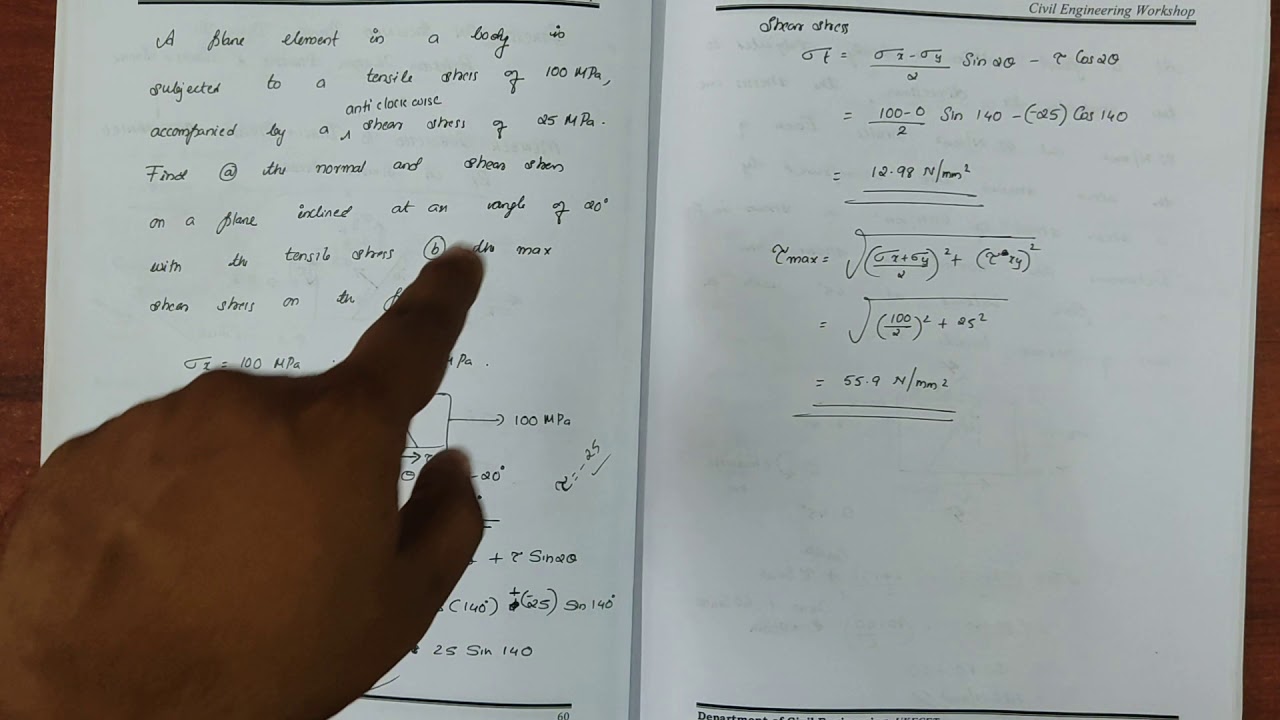 A plane element in a body is
subjected to a tensile stress of 100 MPa,
anti clock wise
accompanied by a ^ shear stress of 25 MPa.
Find ⓐ the normal and shear stress
on a plane inclined at an angle of 20°
with the tensile stress ⓑ the max
shear stress on the
σx = 100 MPa
MPa.
100 MPa
τ = -25 ✓
θ
-20°
+ τ Sin2θ
(140°) + (-25) Sin 140°
25 Sin 140
60
Civil Engineering Workshop
Shear stress
σt = σx - σy / 2 Sin 2θ - τ Cos 2θ
= 100-0 / 2 Sin 140 - (-25) Cos 140
= 12.98 N/mm²
τmax = √(σx+σy / 2)² + (τxy)²
= √(100 / 2)² + 25²
= 55.9 N/mm²
Department of Civil Engineering